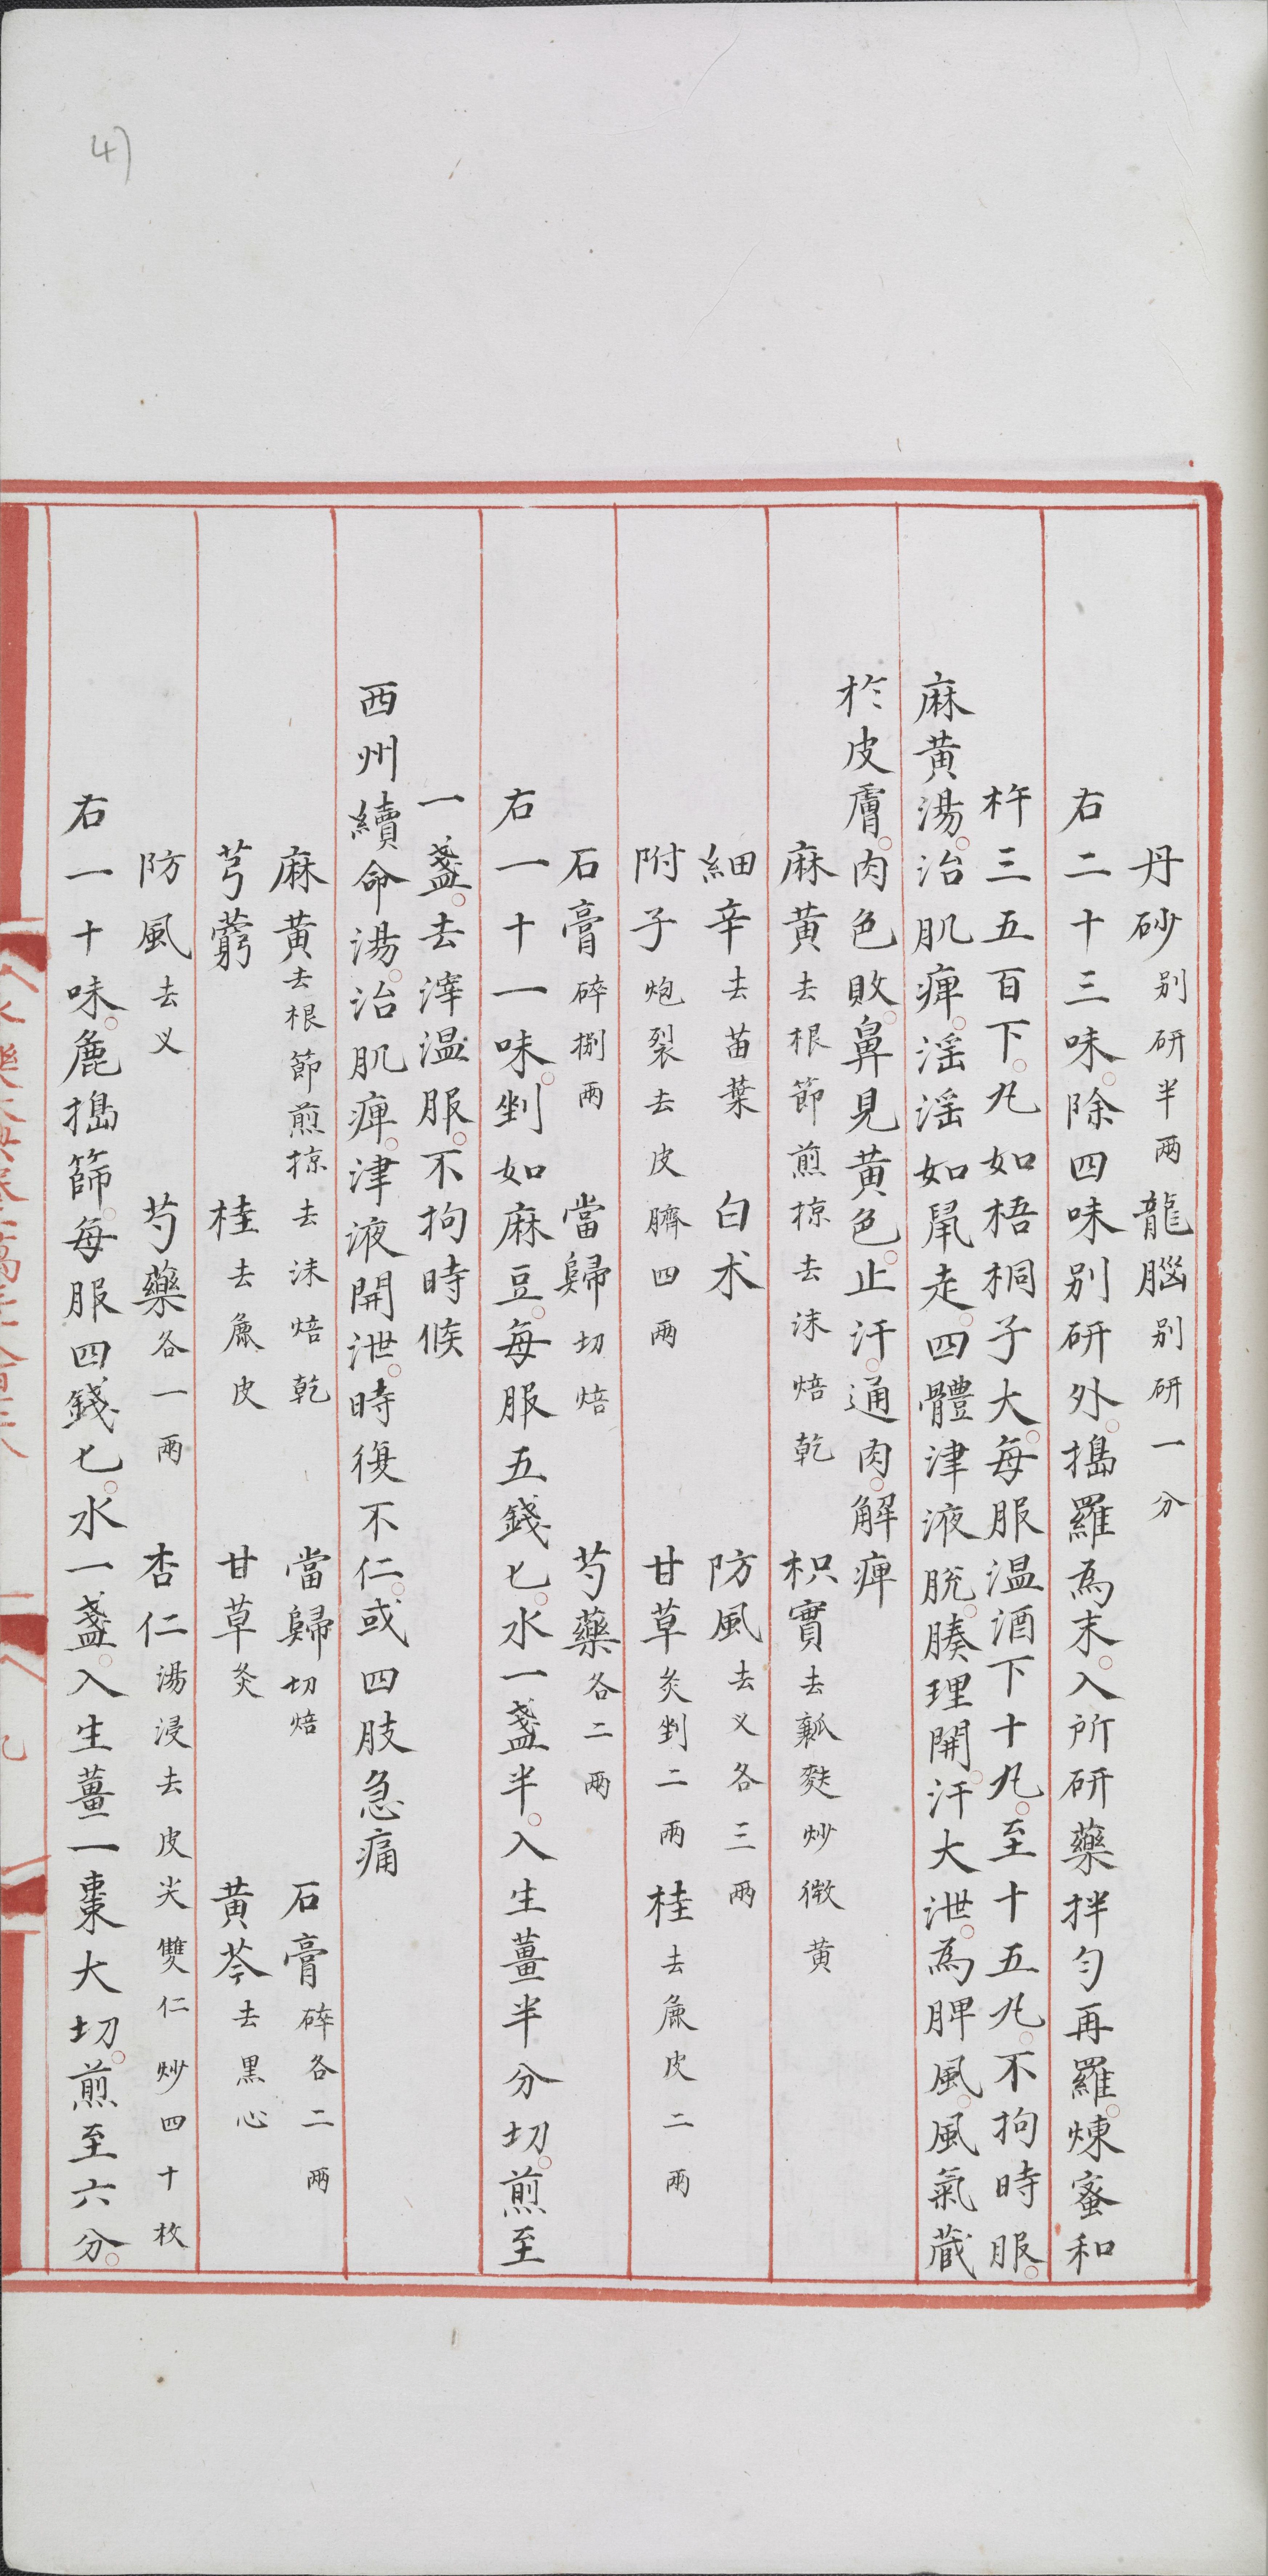 4)
丹砂别研半兩龍腦别研一分
右二十三味。除四味别研外。搗羅為末。入所研藥拌勻再羅。煉蜜和
杵三五百下。丸如梧桐子大。每服温酒下十丸。至十五丸。不拘時服。
麻黄湯。治肌痺。淫淫如鼠走。四體津液脫。腠理開。汗大泄。為脾風。風氣蔵
於皮膚。肉色敗。鼻見黄色。止汗。通肉。解痺
麻黄去根節煎掠去沫焙乾 枳實去瓤麩炒微黄
細辛去苗葉 白术 防風去义各三兩
附子炮裂去皮臍四兩 甘草炙剉二兩桂去麄皮二兩
石膏碎捌兩 當歸切焙 芍藥各二兩
右一十一味。剉如麻豆。每服五錢匕。水一盞半。入生薑半分切。煎至
一盞。去滓温服。不拘時候
西州續命湯。治肌痺。津液開泄。時復不仁。或四肢急痛
麻黄去根節煎掠去沫焙乾 當歸切焙 石膏碎各二兩
芎藭 桂去麄皮 甘草炙 黄芩去黒心
防風去义 芍藥各一兩 杏仁湯浸去皮尖雙仁炒四十枚
右一十味。麄搗篩。每服四錢匕。水一盞。入生薑一棗大切。煎至六分。